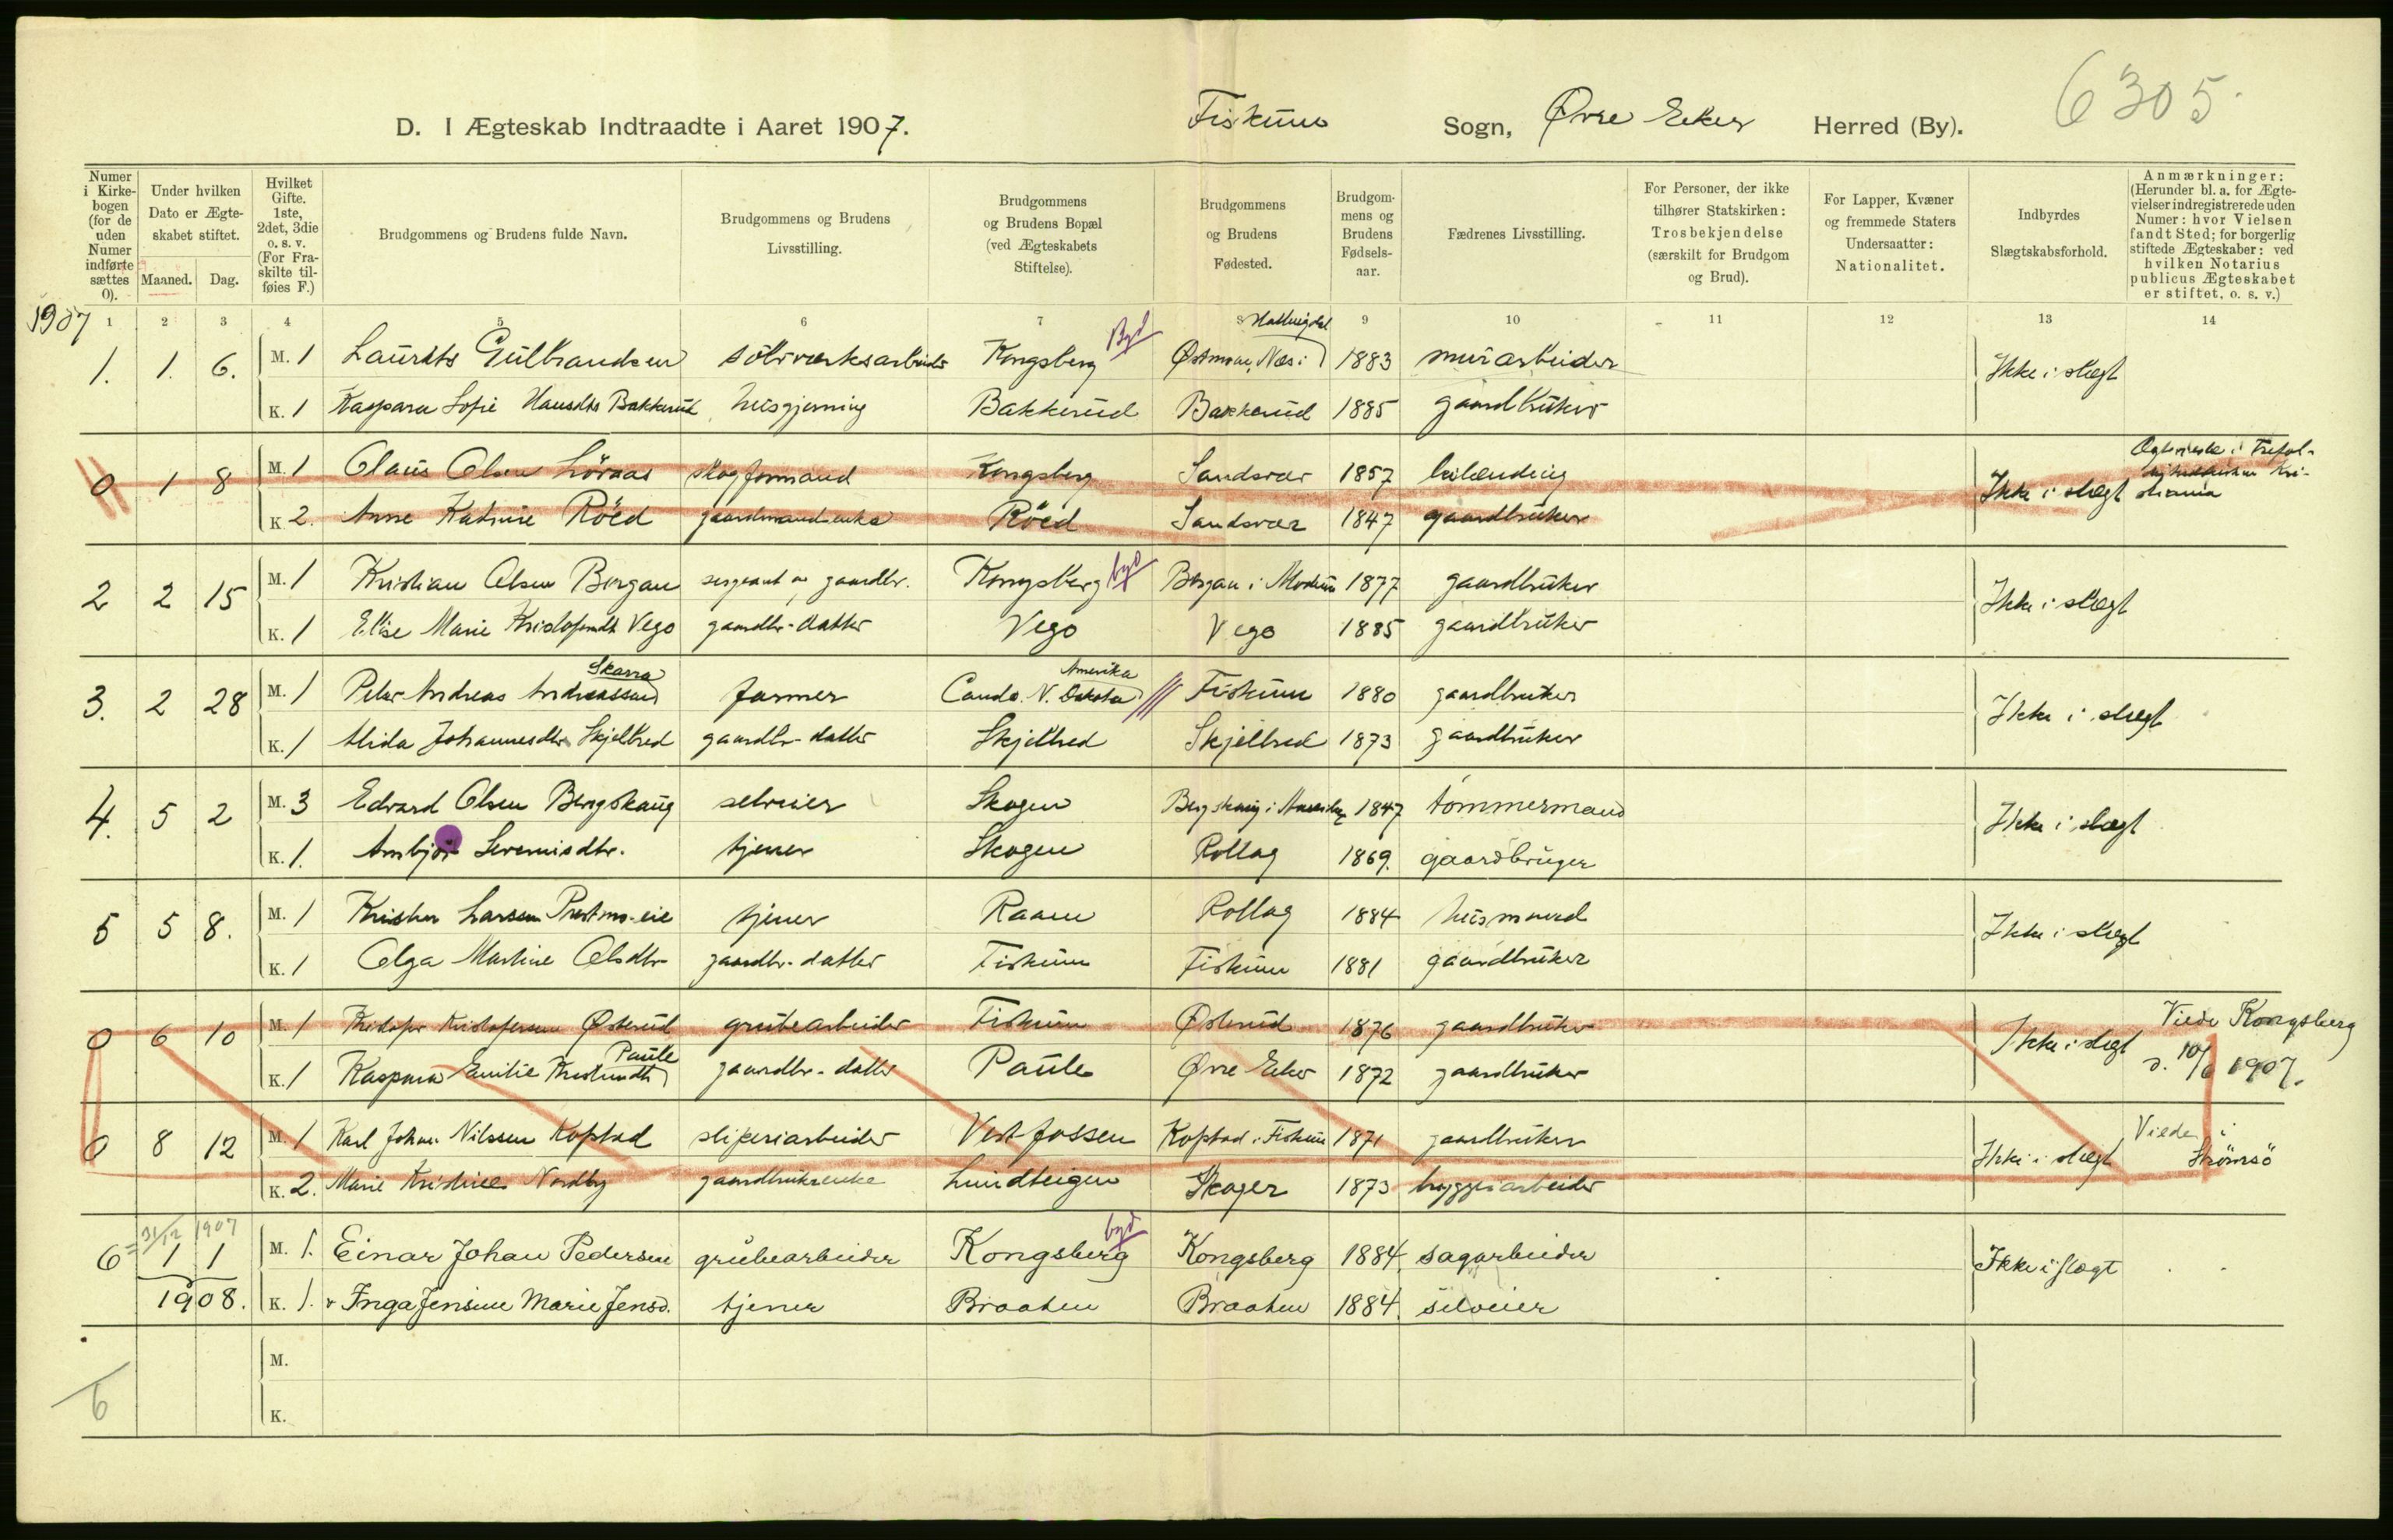 6305
D. I Ægteskab Indtraadte i Aaret 1907. Fiskum Sogn, Øvre Eker Herred (By).
Numer i Kirkebogen (for de uden Numer indførte sættes 0).
Under hvilken Dato er Ægteskabet stiftet.
Maaned. Dag.
Hvilket Gifte. 1ste, 2det, 3die o. s. v. (For Fraskilte tilføies F.)
Brudgommens og Brudens fulde Navn.
Brudgommens og Brudens Livsstilling.
Brudgommens og Brudens Bopæl (ved Ægteskabets Stiftelse).
Brudgommens og Brudens Fødested.
Brudgommens og Brudens Fødselsaar.
Fædrenes Livsstilling.
For Personer, der ikke tilhører Statskirken: Trosbekjendelse (særskilt for Brudgom og Brud).
For Lapper, Kvæner og fremmede Staters Undersaatter: Nationalitet.
Indbyrdes Slægtskabsforhold.
Anmærkninger: (Herunder bl. a. for Ægtevielser indregistrerede uden Numer: hvor Vielsen fandt Sted; for borgerlig stiftede Ægteskaber: ved hvilken Notarius publicus Ægteskabet er stiftet, o. s. v.)
1907 1 2 3 4 5 6 7 8 9 10 11 12 13 14
1. 1. 6. M. 1 Laurits Gulbrandsen sölvverksarbeider Kongsberg Byd Østmoen, Næs i Hallingdal 1883 murarbeider Ikke i slægt
K. 1 Kaspara Sofie Hansdtr Bakkerud husgjerning Bakkerud Bakkerud 1885 gaardbruker
0 1 8 M. 1 Olaus Olsen Löraas skogformand Kongsberg Sandsvær 1857 leilænding Ikke i slægt
K 2. Anne Katrine Röed gaardmandsenke Röed Sandsvær 1847 gaardbruker
2 2 15 M. 1 Kristian Olsen Borgan sergeant og gaardbr. Kongsberg byd Borgan i Modum 1877 gaardbruker Ikke i slægt
K. 1 Elise Marie Kristofersdt Vego gaardbr-datter Vego Vego 1885 gaardbruker
3. 2 28 M. 1 Peter Andreas Andreassen Skarra farmer Cando N. Dakota Amerika Fiskum 1880 gaardbruker Ikke i slægt
K. 1 Alida Johannesdtr Skjelbred gaardbr-datter Skjelbred Skjelbred 1873 gaardbruker
4. 5 2 M. 3 Edvard Olsen Bergskaug selveier Skogen Bergskaug i 1847 tömmermand Ikke i slægt
K. 1. Anbjör dtr. tjener Skogen Rollag 1869. gaardbruger
5 5 8. M. 1 Larsen tjener Raaen Rollag 1884 husmand Ikke i slægt
K. 1 Olga Martine Olsdtr gaardbr-datter Fiskum Fiskum 1881 gaardbruker
0 6 10 M. 1 Kristofer Kristofersen Østerud grubearbeider Fiskum Østerud 1876 gaardbruker Ikke i slægt Viede Kongsberg
K. 1 Kaspara Emilie Paule gaardbr-datter Paule Øvre Eker 1872 gaardbruker d. 10/6 1907.
0 8 12 M. 1 Karl Johan Nilssen Kopstad sliperiarbeider Vestfossen Kopstad i Fiskum 1871 gaardbruker Ikke i slægt Viede i Strömsö
K. 2. Marie Kristine Nordby gaardbrukerenke Lundteigen Skoger 1873 bryggeriarbeider
31/12 1907
6 1 1 M. 1. Einar Johan Pedersen grubearbeider Kongsberg byd Kongsberg 1884. sagarbeider Ikke i slægt
1908. K. 1. Inga Jensine Marie Jensd. tjener Braaten Braaten 1884. selveier
M.
6
K.